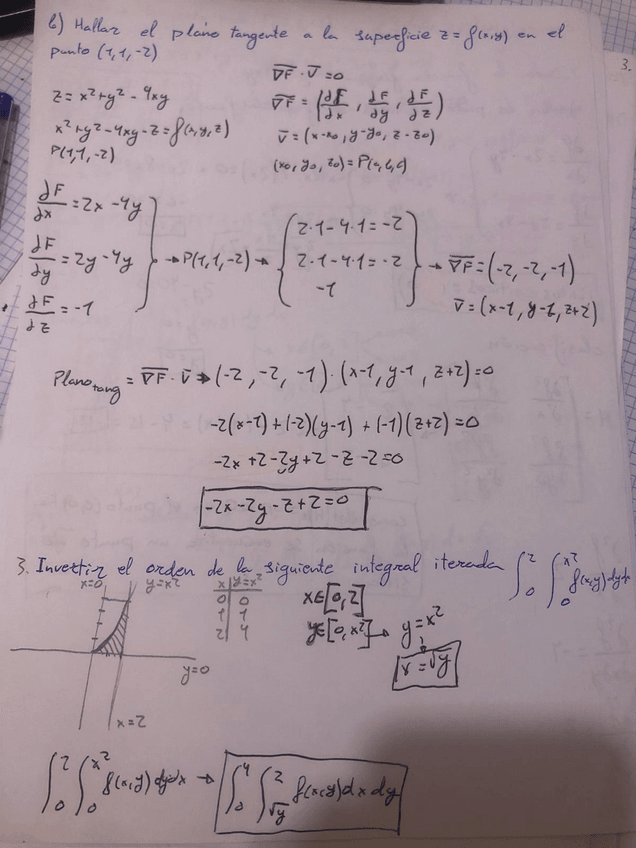 b) Hallar el plano tangente a la superficie z = f(x,y) en el
punto (1,1,-2)
∇F · V = 0
z = x² + y² - 4xy
∇F = (∂F/∂x, ∂F/∂y, ∂F/∂z)
x² + y² - 4xy - z = f(x,y,z)
V = (x-x0, y-y0, z-z0)
P(1,1,-2)
(x0, y0, z0) = P(a,b,c)
∂F/∂x = 2x - 4y
∂F/∂y = 2y - 4y
∂F/∂z = -1
→ P(1,1,-2) →
2·1-4·1=-2
2·1-4·1=-2
-1
→ ∇F = (-2, -2, -1)
V = (x-1, y-1, z+2)
Plano tang = ∇F · V → (-2, -2, -1) · (x-1, y-1, z+2) = 0
-2(x-1) + (-2)(y-1) + (-1)(z+2) = 0
-2x + 2 - 2y + 2 - z - 2 = 0
-2x - 2y - z + 2 = 0
3. Invertir el orden de la siguiente integral iterada ∫₀² ∫₀^x² f(x,y) dy dx
x=0
y=x²
y=0
x=2
x | y=x²
0 | 0
1 | 1
2 | 4
x∈[0,2]
y∈[0,x²] → y = x²
x = √y
∫₀² ∫₀^x² f(x,y) dy dx → ∫₀⁴ ∫_√y² f(x,y) dx dy
3.